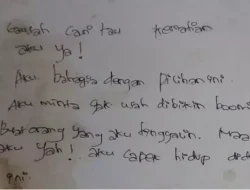 Gausah cari tau kematian
aku ya!
Aku bahagia dengan pilihan ini.
Aku minta gak usah dibikin boomi
Buat orang yang aku tinggalin. Maa
aku yah! aku capek hidup di
ini.